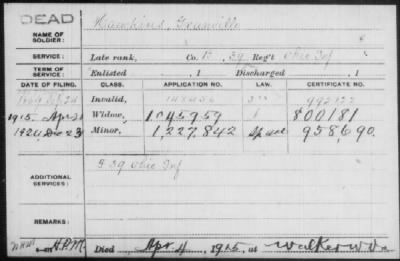 DEAD
NAME OF SOLDIER: Hawkins, Granville
SERVICE: Late rank, Co. 39 Reg't Ohio Inf
TERM OF SERVICE: Enlisted , 1 Discharged , 1
DATE OF FILING. CLASS. APPLICATION NO. LAW. CERTIFICATE NO.
Invalid,
1915 Apr Widow, 1045959 800181
1920 Dec 23 Minor, 1,227,842 958690
ADDITIONAL SERVICES: F 39 Ohio Inf
REMARKS:
H.P.M. Died Apr. 4, 1915, at Walker W Va